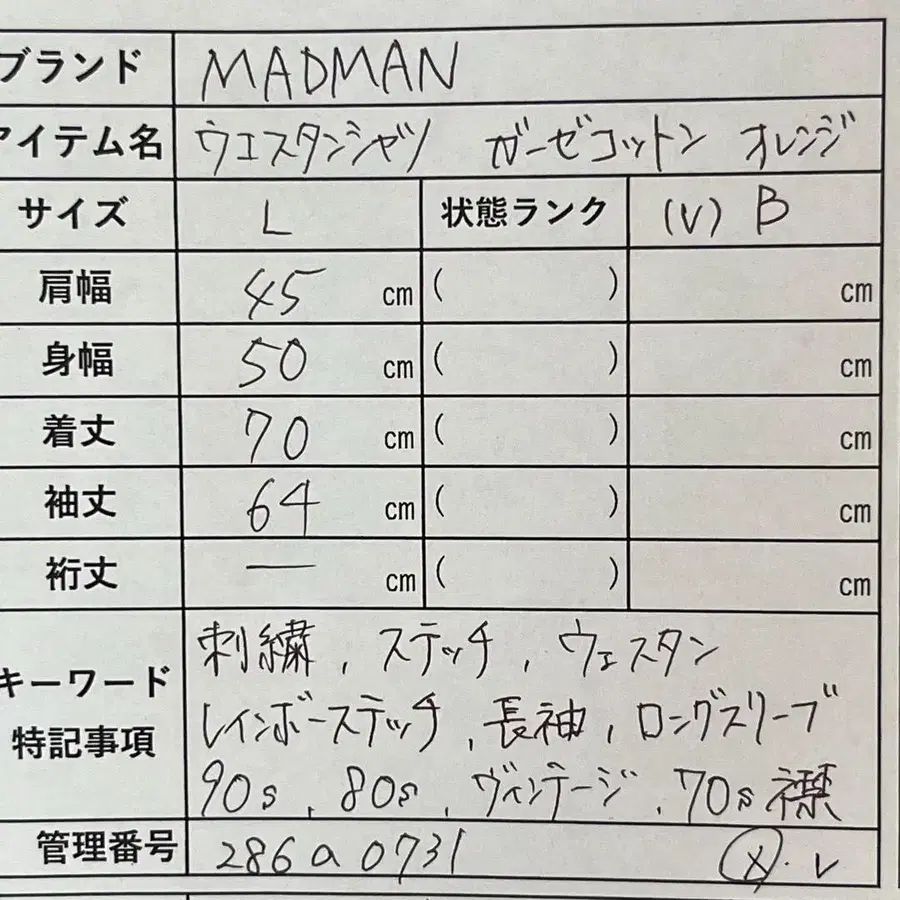 ブランド MADMAN
アイテム名 ウエスタンシャツ ガーゼコットン オレンジ
サイズ L 状態ランク (V) B
肩幅 45 cm ( ) cm
身幅 50 cm ( ) cm
着丈 70 cm ( ) cm
袖丈 64 cm ( ) cm
裄丈 — cm ( ) cm
キーワード
特記事項
刺繍, ステッチ, ウェスタン
レインボーステッチ, 長袖, ロングスリーブ
90s, 80s, ヴィンテージ, 70s 襟
管理番号 286a0731 X・V